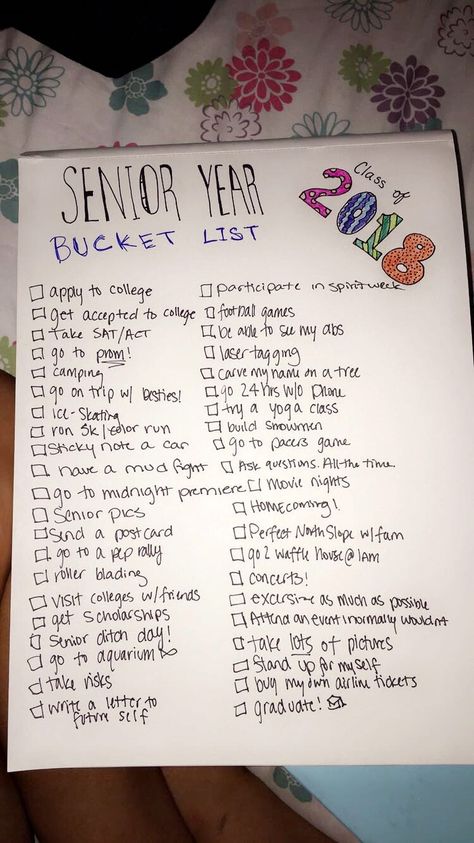 SENIOR YEAR
BUCKET LIST
Class of
2018
apply to college
get accepted to college
Take SAT/ACT
go to prom!
camping
go on trip w/ besties!
ice-skating
run 5k/color run
Sticky note a car
have a mud fight
go to midnight premiere
Senior pics
Send a postcard
go to a pep rally
roller blading
Visit colleges w/friends
get scholarships
Senior ditch day!
go to aquarium
take risks
write a letter to
future self
participate in spiritweek
football games
be able to see my abs
laser tagging
carve my name on a tree
go 24 hrs w/o phone
try a yoga class
build snowmen
go to pacers game
Ask questions. All the time.
movie nights
HOMEcoming!
Perfect North Slope w/fam
go 2 waffle house @ 1AM
concerts!
excersise as much as possible
Attend an event i normally wouldnt
take lots of pictures
Stand up for myself
buy my own airline tickets
graduate!